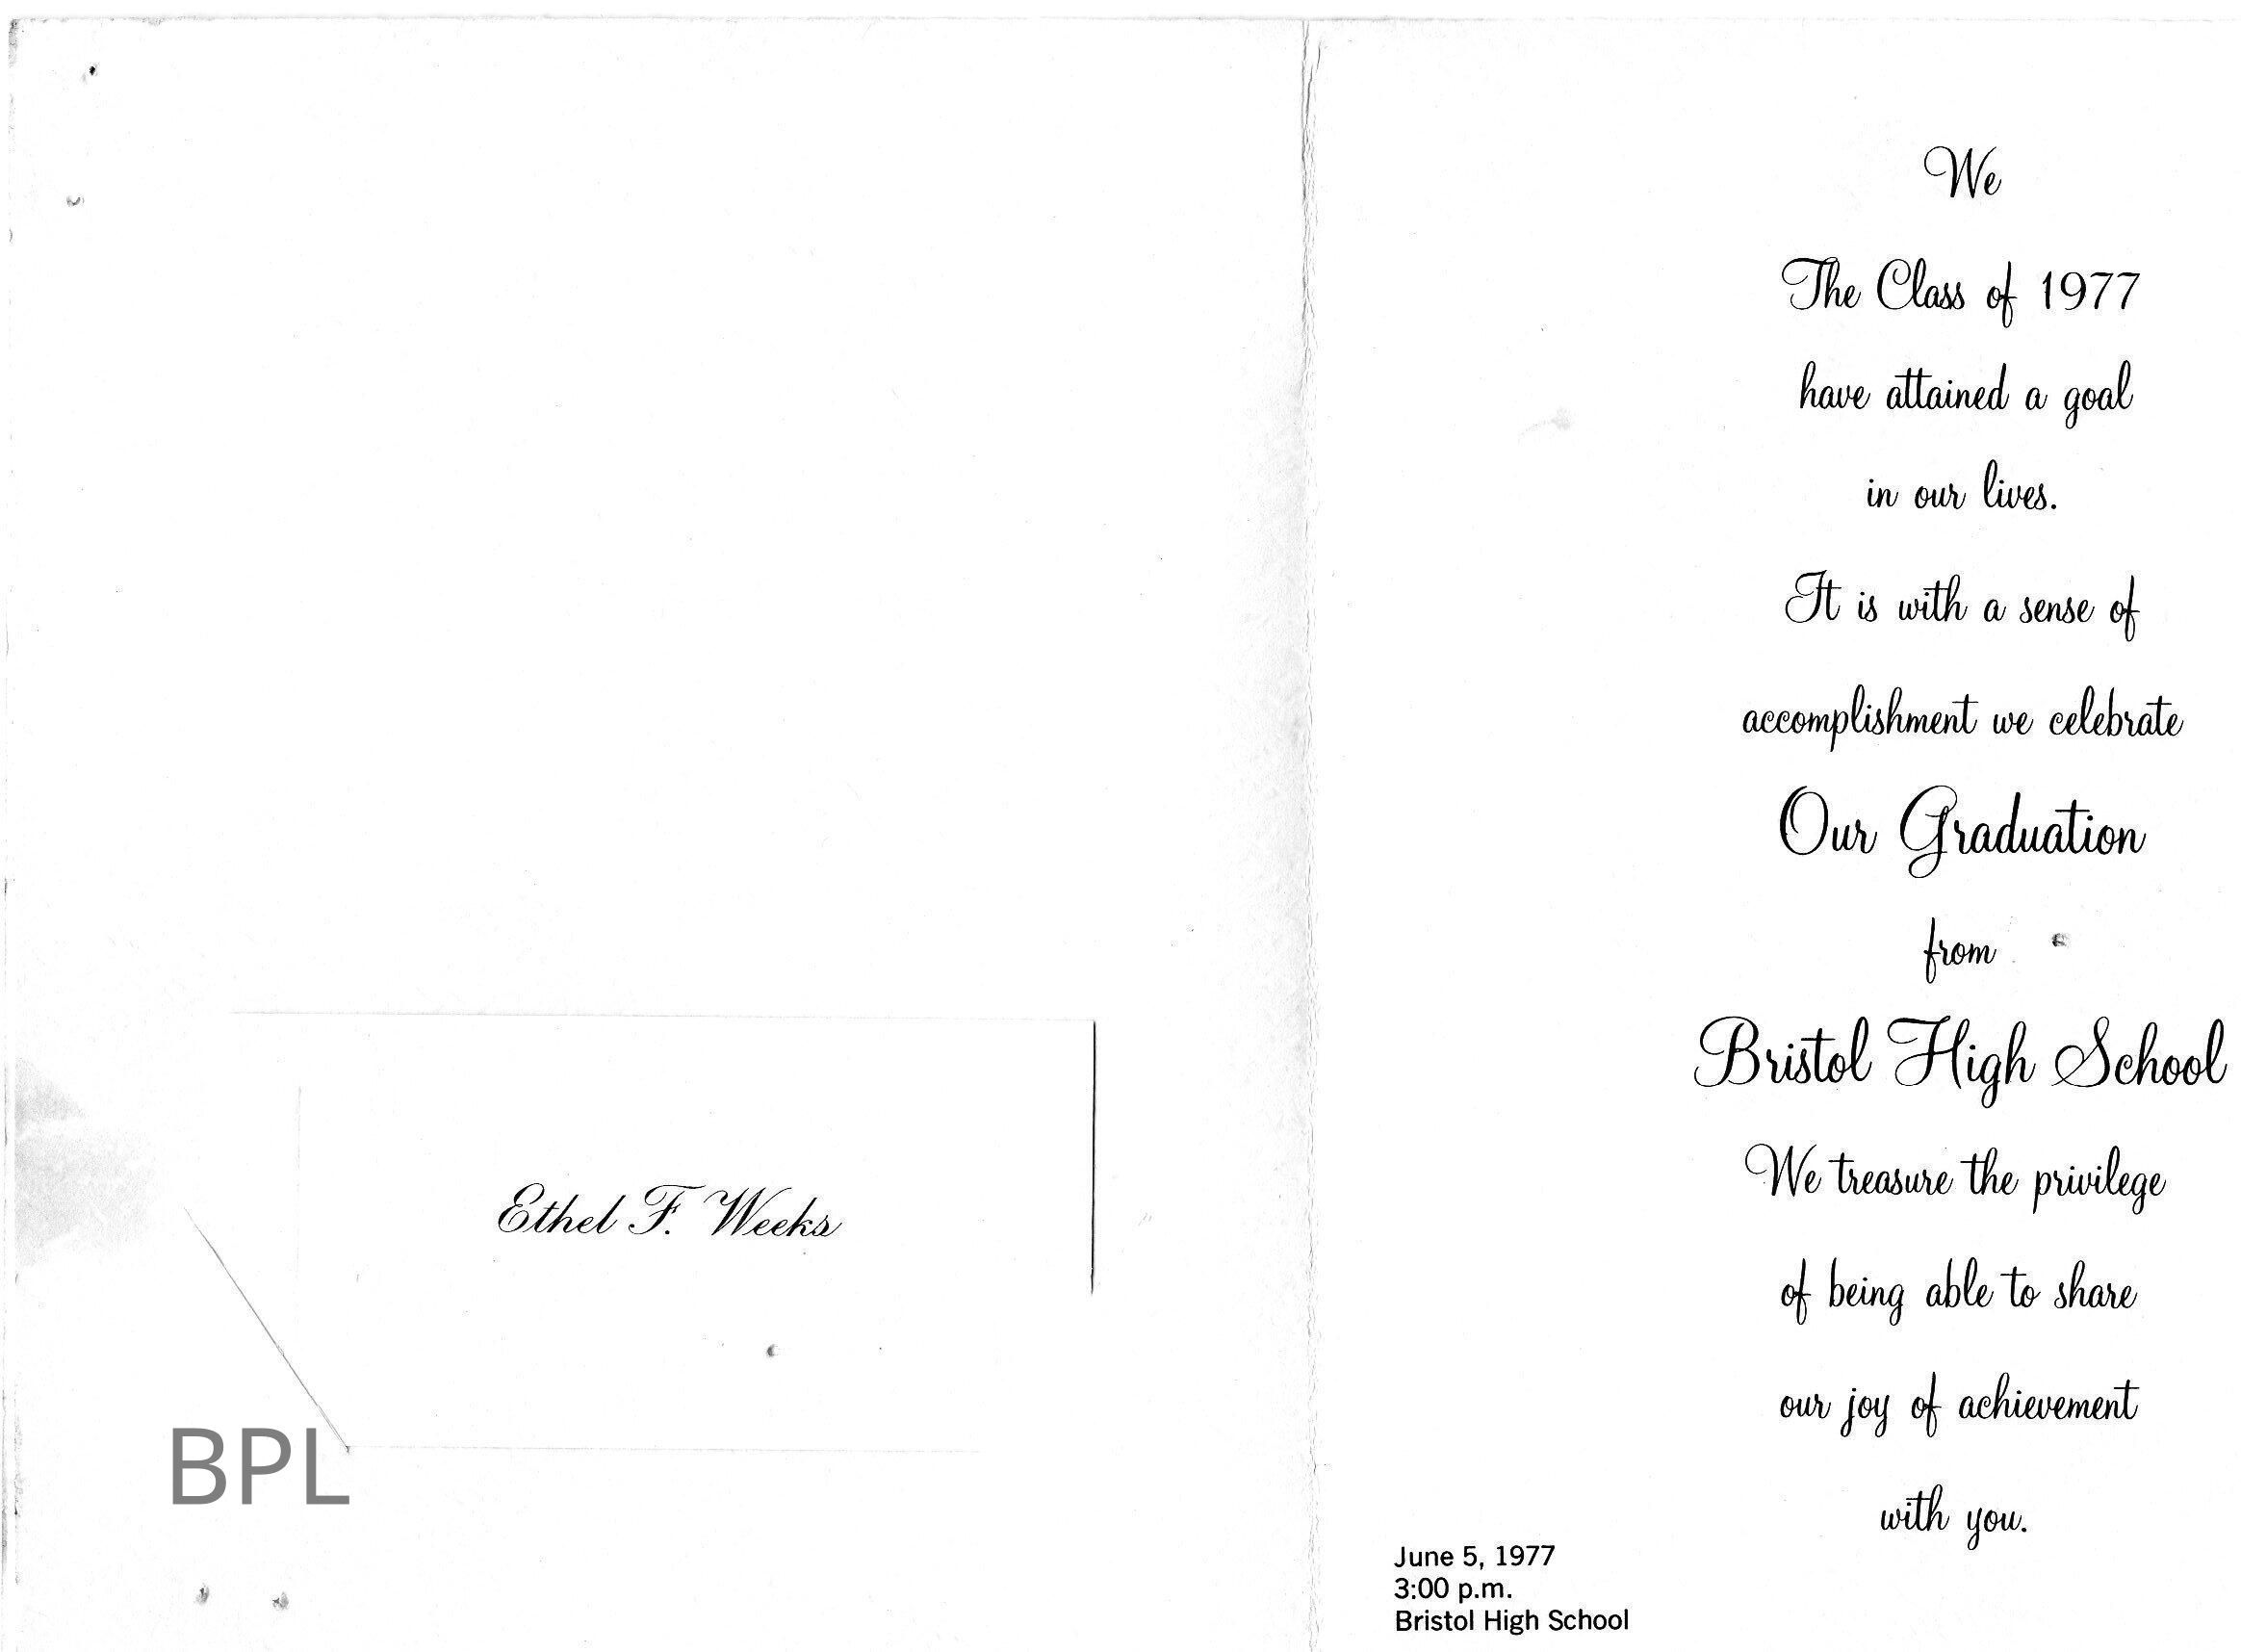 Ethel F. Weeks
BPL
We
The Class of 1977
have attained a goal
in our lives.
It is with a sense of
accomplishment we celebrate
Our Graduation
from
Bristol High School
We treasure the privilege
of being able to share
our joy of achievement
with you.
June 5, 1977
3:00 p.m.
Bristol High School